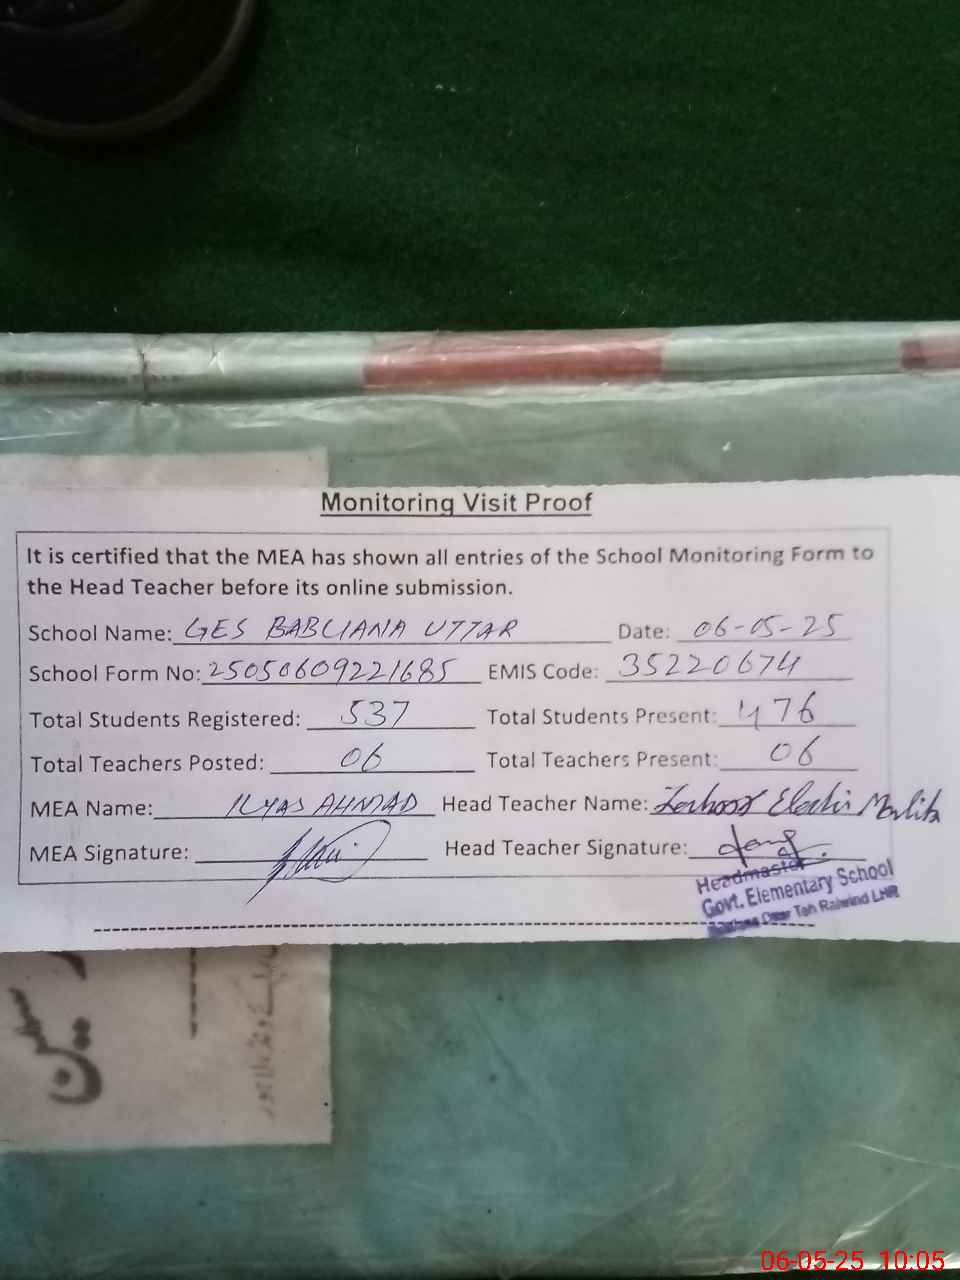 Monitoring Visit Proof
It is certified that the MEA has shown all entries of the School Monitoring Form to
the Head Teacher before its online submission.
School Name: GES BABLIANA UTTAR Date: 06-05-25
School Form No: 25050609221685 EMIS Code: 35220674
Total Students Registered: 537 Total Students Present: 476
Total Teachers Posted: 06 Total Teachers Present: 06
MEA Name: ILYAS AHMAD Head Teacher Name:
MEA Signature: Head Teacher Signature:
Headmaster
Govt. Elementary School
Teh Raiwind LHR
06-05-25 10:05